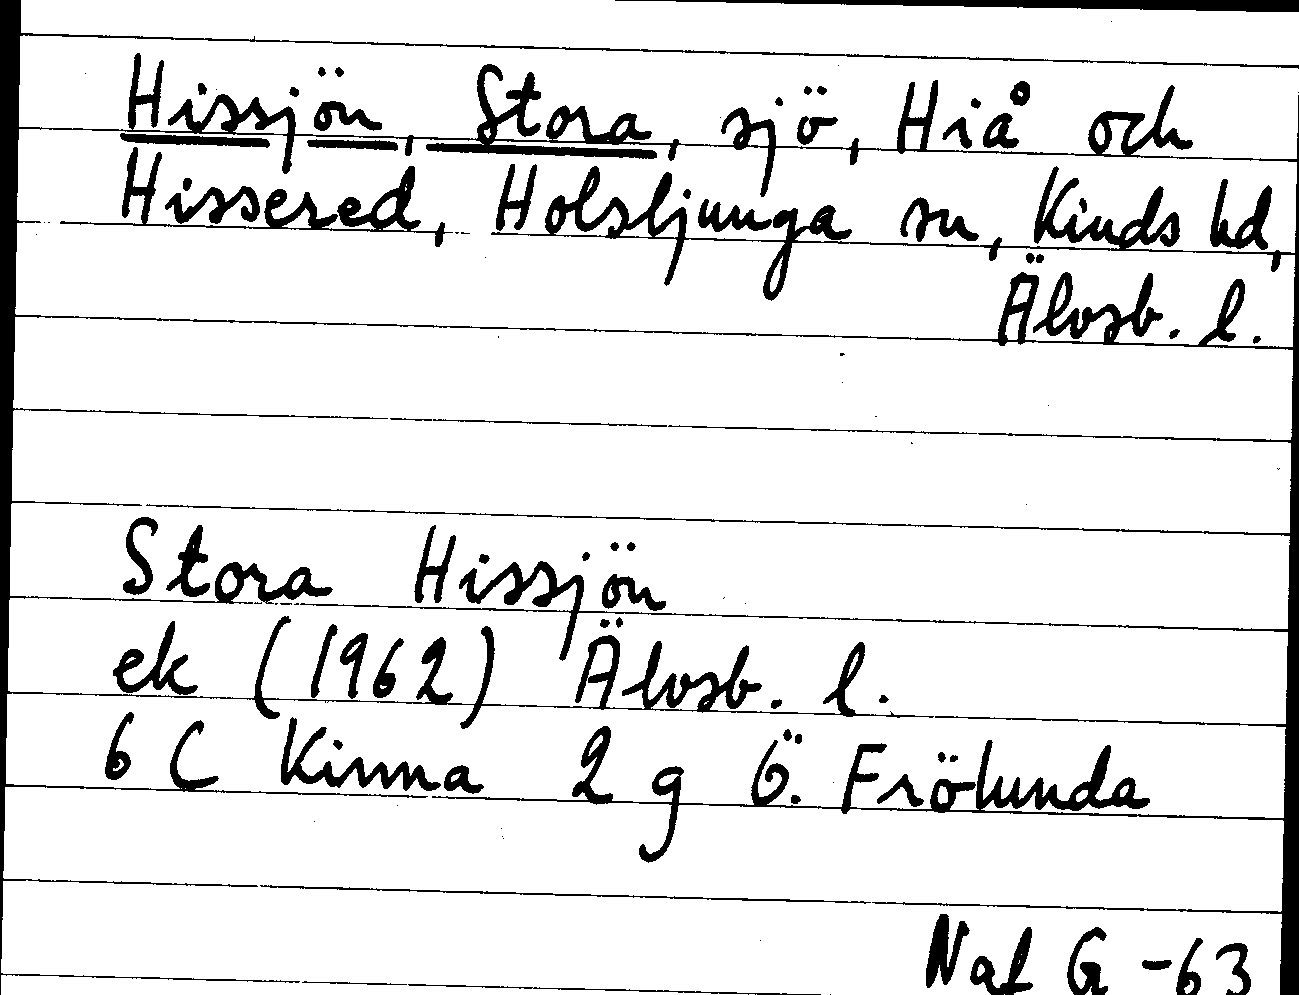 Hissjön, Stora, sjö, Hiå och
Hissered, Holsljunga sn, Kinds hd,
Älvsb. l.
Stora Hissjön
ek (1962) Älvsb. l.
6 C Kinna 2 g Ö. Frölunda
Naf G -63